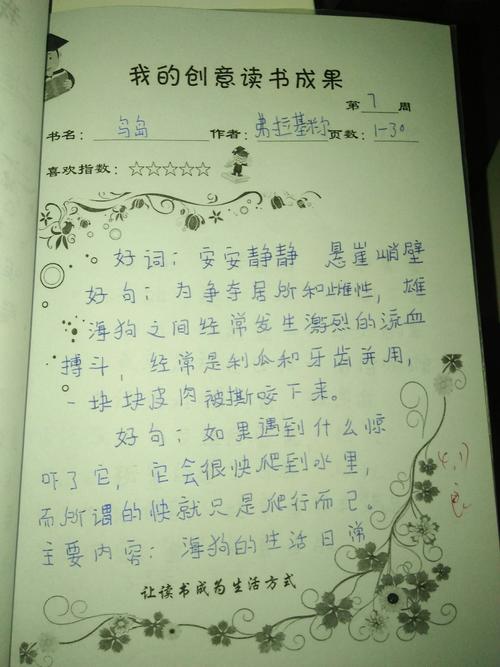 我的创意读书成果
第7周
书名：鸟岛 作者：弗拉基米尔 页数：1-30
喜欢指数：☆☆☆☆☆
好词；安安静静 悬崖峭壁
好句：为争夺居所和雌性，雄
海狗之间经常发生激烈的流血
搏斗，经常是利爪和牙齿并用，
一块块皮肉被撕咬下来。
好句；如果遇到什么惊
吓了它，它会很快爬到水里，
而所谓的快就只是爬行而已。
主要内容：海狗的生活日常
让读书成为生活方式